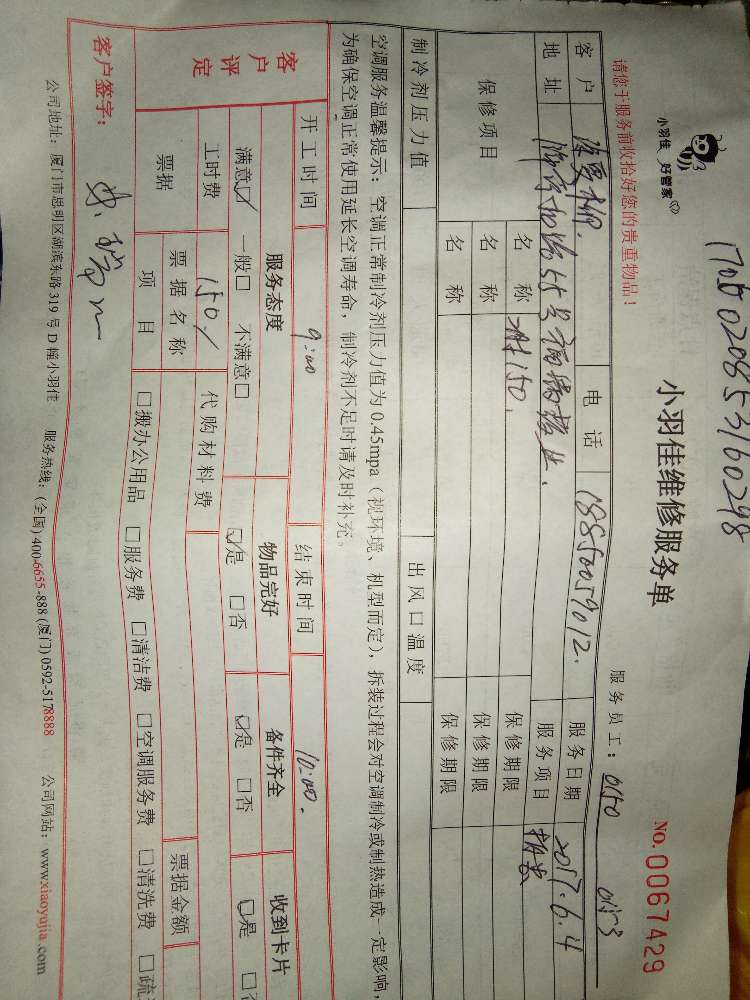 17050208531 60298
小羽佳 好管家
小羽佳维修服务单
NO.0067429
请您于服务前收拾好您的贵重物品!
服务员工: 0150
客户
电话 18850059012.
服务日期 2017.6.4
地址
服务项目
保修项目
名称 150.
保修期限
名称
保修期限
名称
保修期限
制冷剂压力值
出风口温度
空调服务温馨提示: 空调正常制冷剂压力值为0.45mpa (视环境、机型而定), 拆装过程会对空调制冷或制热造成一定影响,
为确保空调正常使用延长空调寿命, 制冷剂不足时请及时补充。
开工时间 9:00
结束时间 10:00.
客户评定
服务态度
物品完好
备件齐全
收到卡片
满意☑ 一般□ 不满意□
☑是 □否
☑是 □否
☑是
工时费 150/
代购材料费
票据
票据名称
票据金额
项目
□搬办公用品 □服务费 □清洁费 □空调服务费 □清洗费
客户签字:
公司地址: 厦门市思明区湖滨东路319号D幢小羽佳 服务热线: (全国) 400-6655-888 (厦门) 0592-5178888 公司网站: www.xiaoyujia.com